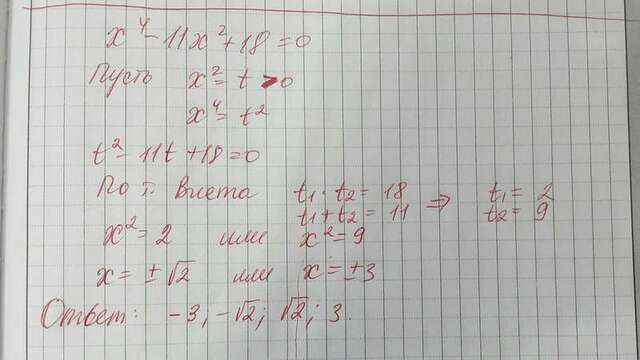 x⁴ - 11x² + 18 = 0
Пусть x² = t > 0
x⁴ = t²
t² - 11t + 18 = 0
По т. Виета t₁ · t₂ = 18 ⇒ t₁ = 2
t₁ + t₂ = 11 t₂ = 9
x² = 2 или x² = 9
x = ±√2 или x = ±3
Ответ: -3, -√2; √2; 3.